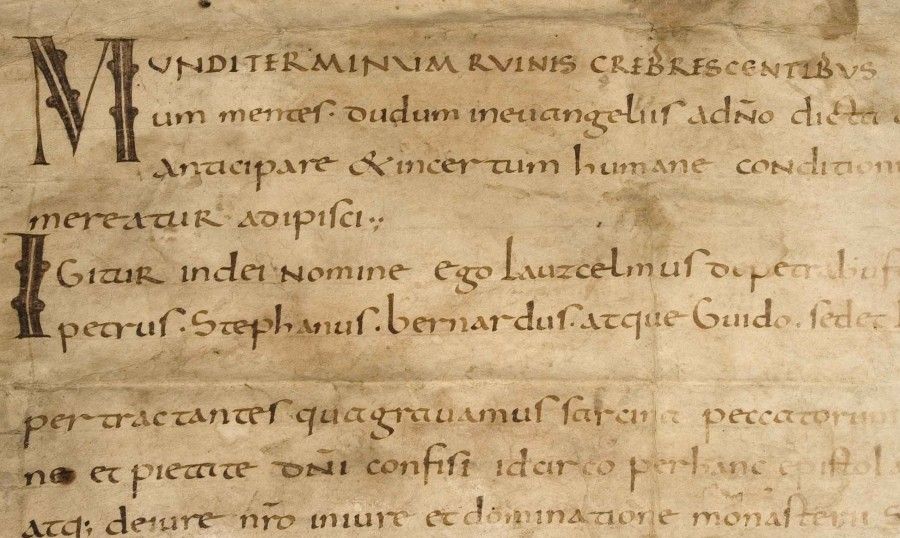 MUNDI TERMINUM RUINIS CREBRESCENTIBUS
um mentes. dudum in euangeliis a dño dicta
anticipare & incertum humane condition
mereatur adipisci.,
IGITUR in dei nomine ego
petrus. Stephanus. bernardus. atque Guido. sed et
pertractantes qua grauamus sarcina peccatorum
ne et pietate dñi confisi idcirco per hanc epistola
atq; de iure nr̃o in iure et dominatione monasterii S